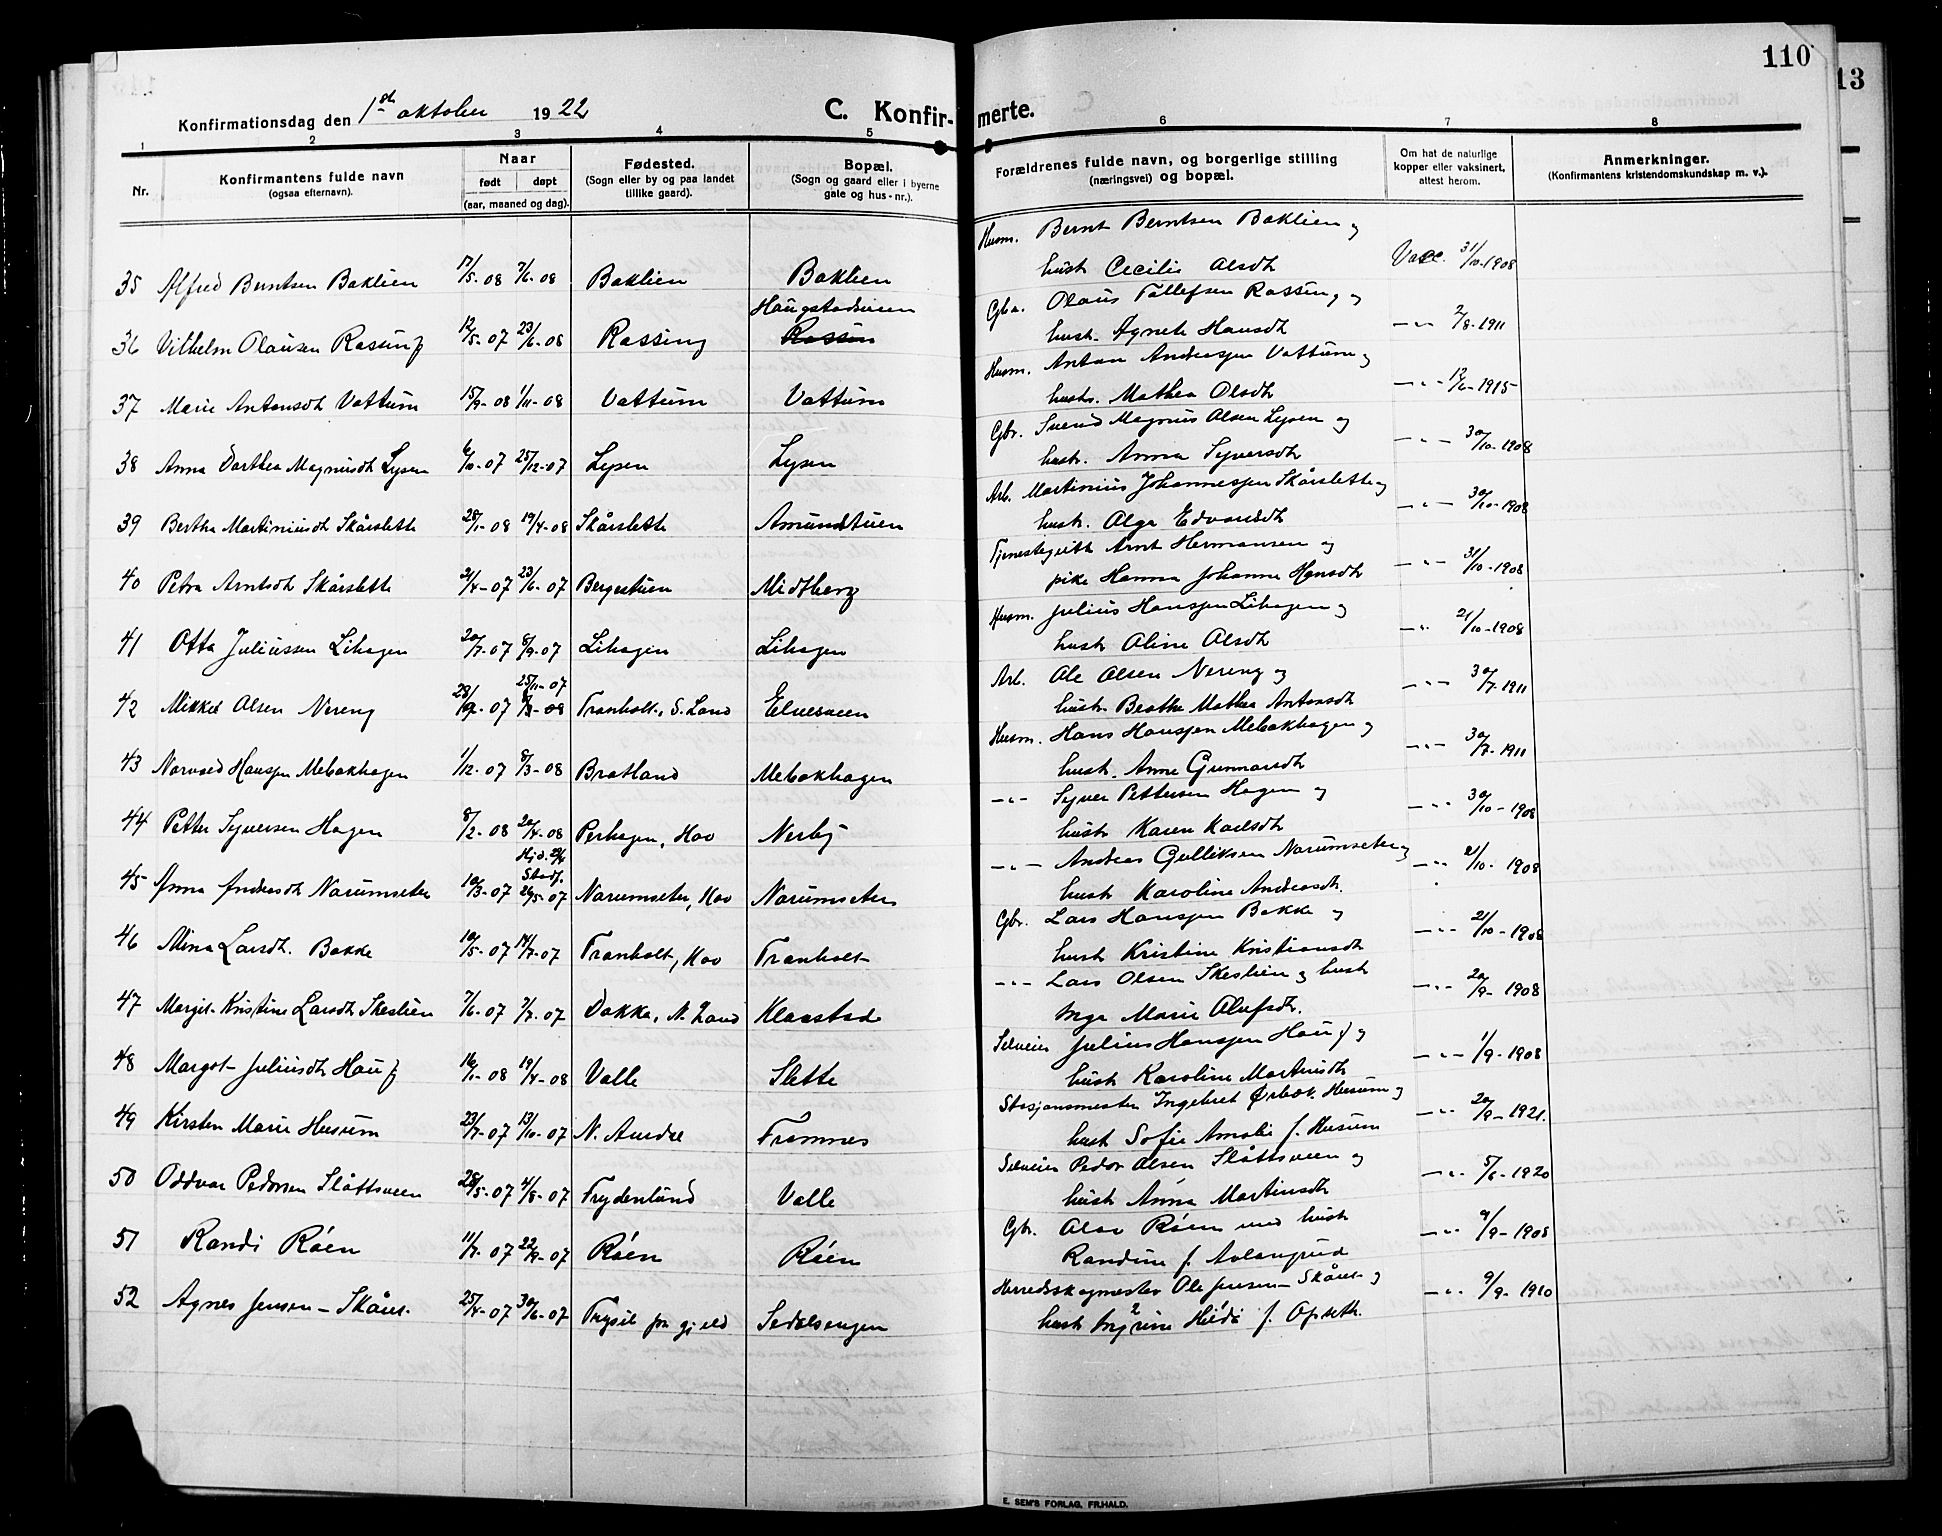 110
13
Konfirmationsdag den 1st oktober 1922
C. Konfir-
merte.
1 2 3 4 5 6 7 8
Nr.
Konfirmantens fulde navn
(ogsaa efternavn).
Naar
født døpt
(aar, maaned og dag).
Fødested.
(Sogn eller by og paa landet
tillike gaard).
Bopæl.
(Sogn og gaard eller i byerne
gate og hus-nr.).
Forældrenes fulde navn, og borgerlige stilling
(næringsvei) og bopæl.
Om hat de naturlige
kopper eller vaksinert,
attest herom.
Anmerkninger.
(Konfirmantens kristendomskundskap m. v.).
Husm. Bernt Berntsen Baklien og
35 Alfred Berntsen Baklien 17/5-08 7/6-08 Baklien Baklien hust Cecilie Olsdt Vacc. 31/10-1908
Haugstadveien
Gba. Olaus Tollefsen Rossing og
36 Vilhelm Olausen Rossing 12/5-07 23/6-08 Rossing Rossin hust. Agnete Hansdt —"— 2/8-1911
Husm. Anton Andersen Vattum og
37 Marie Antonsdt Vattum 15/9-08 1/11-08 Vattum Vattum hustr. Mathea Olsdt —"— 12/6-1915
Gbr. Svend Magnus Olsen Lysen og
38 Anna Dorthea Magnusdt Lysen 6/10-07 25/12-07 Lysen Lysen hustr. Anna Syversdt —"— 30/10-1908
Arb. Martinius Johannessen Skårslette og
39 Bertha Martiniusdt Skårslette 28/1-08 19/4-08 Skårslette Amundtuen hustr. Olga Edvardsdt —"— 30/10-1908
Tjenestegutt Arnt Hermansen og
40 Petra Arntsdt Skårslette 21/4-07 23/6-07 Bergestuen Midtberg pike Hanna Johanne Hansdt —"— 31/10-1908
Husm. Julius Hanssen Lihagen og
41 Otto Juliussen Lihagen 20/7-07 8/9-07 Lihagen Lihagen hust Oline Olsdt —"— 21/10-1908
25/11-07
Arb. Ole Olsen Nereng og
42 Mikkel Olsen Nereng 07 08 Tranholt, S. Land Elvesveen hustr. Beathe Mathea Antonsdt —"— 30/7-1911
Husm. Hans Hanssen Mebakhagen og
43 Norvald Hanssen Mebakhagen 1/12-07 8/3-08 Bratland Mebakhagen hust. Anne Gunnarsdt —"— 30/7-1911
—"— Syver Pettersen Hagen og
44 Petter Syversen Hagen 8/2-08 20/4-08 Perhagen, Hov Nerby hust Karen Karlsdt —"— 30/10-1908
Hjd. 22/4
Stadf.
—"— Andreas Gulliksen Narumseter og
45 Anna Andersdt Narumseter 10/3-07 26/5-07 Narumseter, Hov Narumseter hust Karoline Andersdt. —"— 21/10-1908
Gbr. Lars Hanssen Bakke og
46 Mina Larsdt. Bakke 10/5-07 14/7-07 Tranholt, Hov Tranholt hust Kristine Kristiansdt —"— 21/10-1908
—"— Lars Olsen Skeslien og hust
47 Margit Kristine Larsdt Skeslien 7/6-07 7/7-07 Dokka, N. Land Klaastad Inga Marie Olufsdt. —"— 20/9-1908
Selveier Julius Hanssen Haug og
48 Margot Juliusdt Haug 16/1-08 19/4-08 Valle Slette hust Karoline Martinsdt —"— 1/9-1908
Stasjonsmester Ingebret Husum og
49 Kirsten Marie Husum 23/7-07 13/10-07 N. Aurdal Tromnes hust Sofie Amalie f. Husum —"— 20/9-1921.
Selveier Peder Olsen Slåttsveen og
50 Oddvar Pedersen Slåttsveen 28/5-07 4/8-07 Frydenlund Valle hust Anna Martinsdt —"— 5/6-1920
Gbr. Olav Röen med hust
51 Randi Röen 11/7-07 22/9-07 Röen Röen Randine f. —"— 9/9-1908
Herredsskogmester Ole Jensen-Skåre og
52 Agnes Jensen-Skåre. 25/4-07 30/6-07 Trysil pr gjeld hust Hilda f. Opseth. —"— 9/9-1910
E. SEM'S FORLAG, FR.HALD.